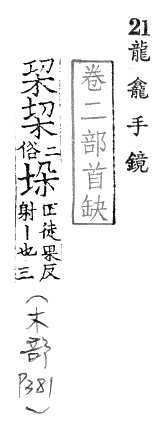 21 龍龕手鏡
卷二部首缺
二俗垛正徒果反射丨也三
(木部P381)